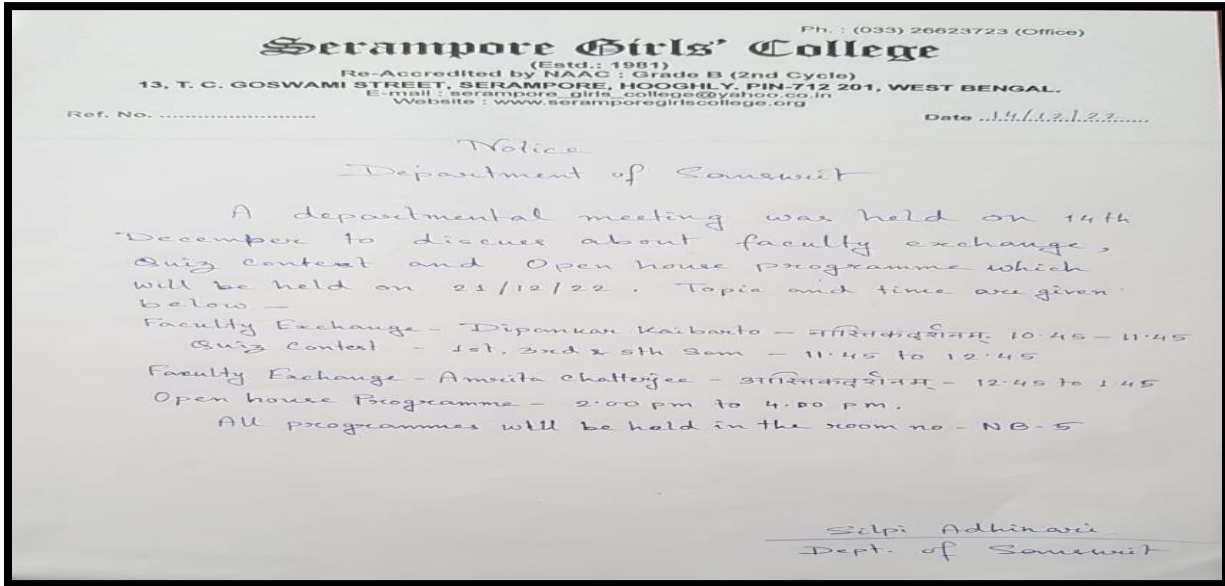 Ph. : (033) 26623723 (Office)
Serampore Girls' College
(Estd.: 1981)
Re-Accredited by NAAC : Grade B (2nd Cycle)
13, T. C. GOSWAMI STREET, SERAMPORE, HOOGHLY. PIN-712 201, WEST BENGAL.
E-mail : serampore_girls_college@yahoo.co.in
Website : www.seramporegirlscollege.org
Ref. No. ..........................
Date ..14/12/22......
Notice
Department of Sanskrit
A departmental meeting was held on 14th
December to discuss about faculty exchange,
Quiz contest and Open house programme which
will be held on 21/12/22. Topic and time are given
below —
Faculty Exchange - Dipankar Kaibarto - नास्तिकदर्शनम्. 10.45 - 11.45
Quiz Contest - 1st, 3rd & 5th Sem - 11.45 to 12.45
Faculty Exchange - Amrita Chatterjee - आस्तिकदर्शनम् - 12.45 to 1.45
Open house Programme - 2.00 pm to 4.00 pm.
All programmes will be held in the room no - NB-5
Silpi Adhikari
Dept. of Sanskrit